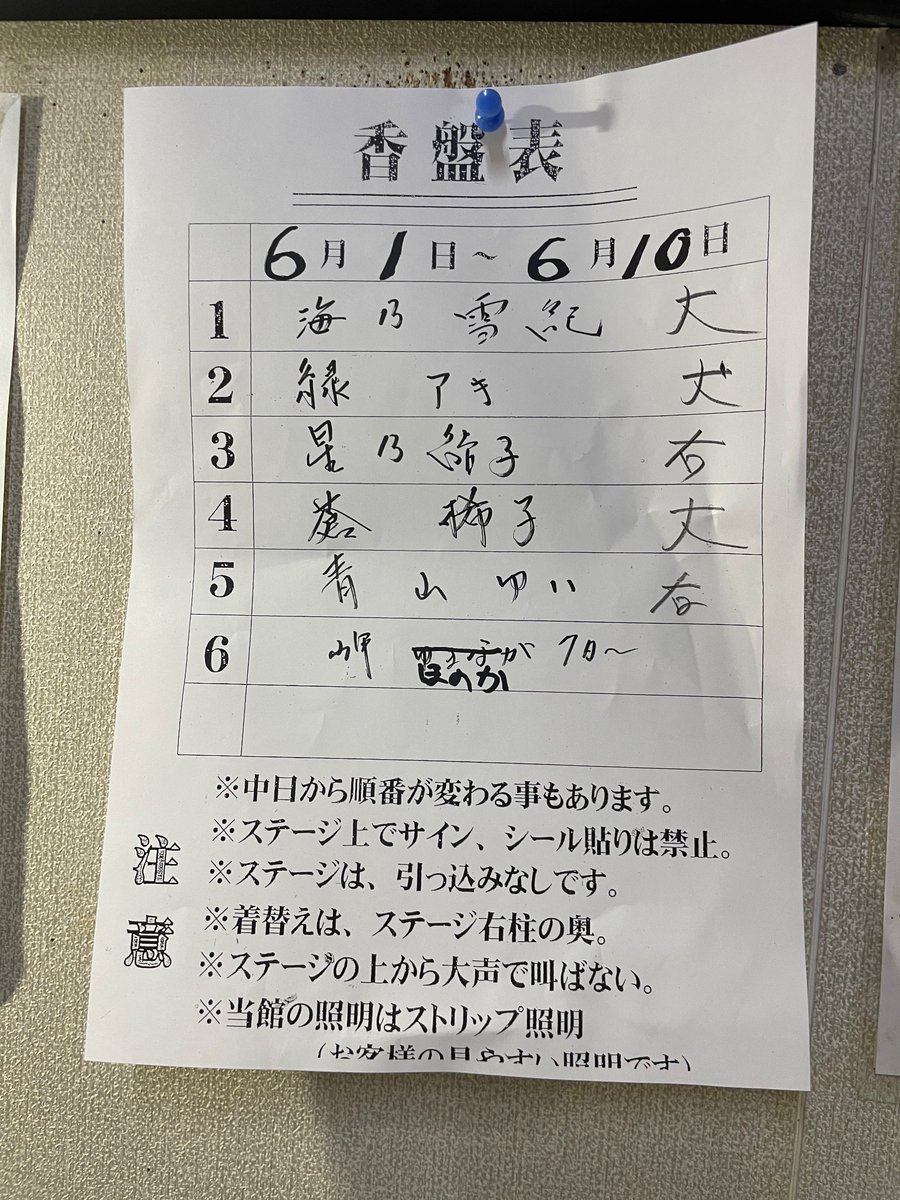 香盤表
6月1日~6月10日
1 海乃雪紀 大
2 緑アキ 丈
3 星乃結子 右
4 蒼 子 丈
5 青山ゆい 右
6 岬 が 7日~
ほのか
注意
※中日から順番が変わる事もあります。
※ステージ上でサイン、シール貼りは禁止。
※ステージは、引っ込みなしです。
※着替えは、ステージ右柱の奥。
※ステージの上から大声で叫ばない。
※当館の照明はストリップ照明
(お客様の見やすい照明です)